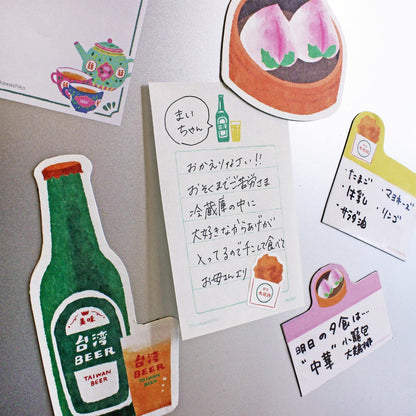 まい
ちゃん
おかえりなさい!!
おそくまでご苦労さま
冷蔵庫の中に
大好きなからあげが
入ってるのでチンして食べて
お母さんより
・たまご ・マヨネーズ
・牛乳 ・リンゴ
・サラダ油
明日の夕食は…
"中華" 小籠包
美味
台湾
BEER
TAIWAN
BEER
台湾
BEER
TAIWAN
BEER